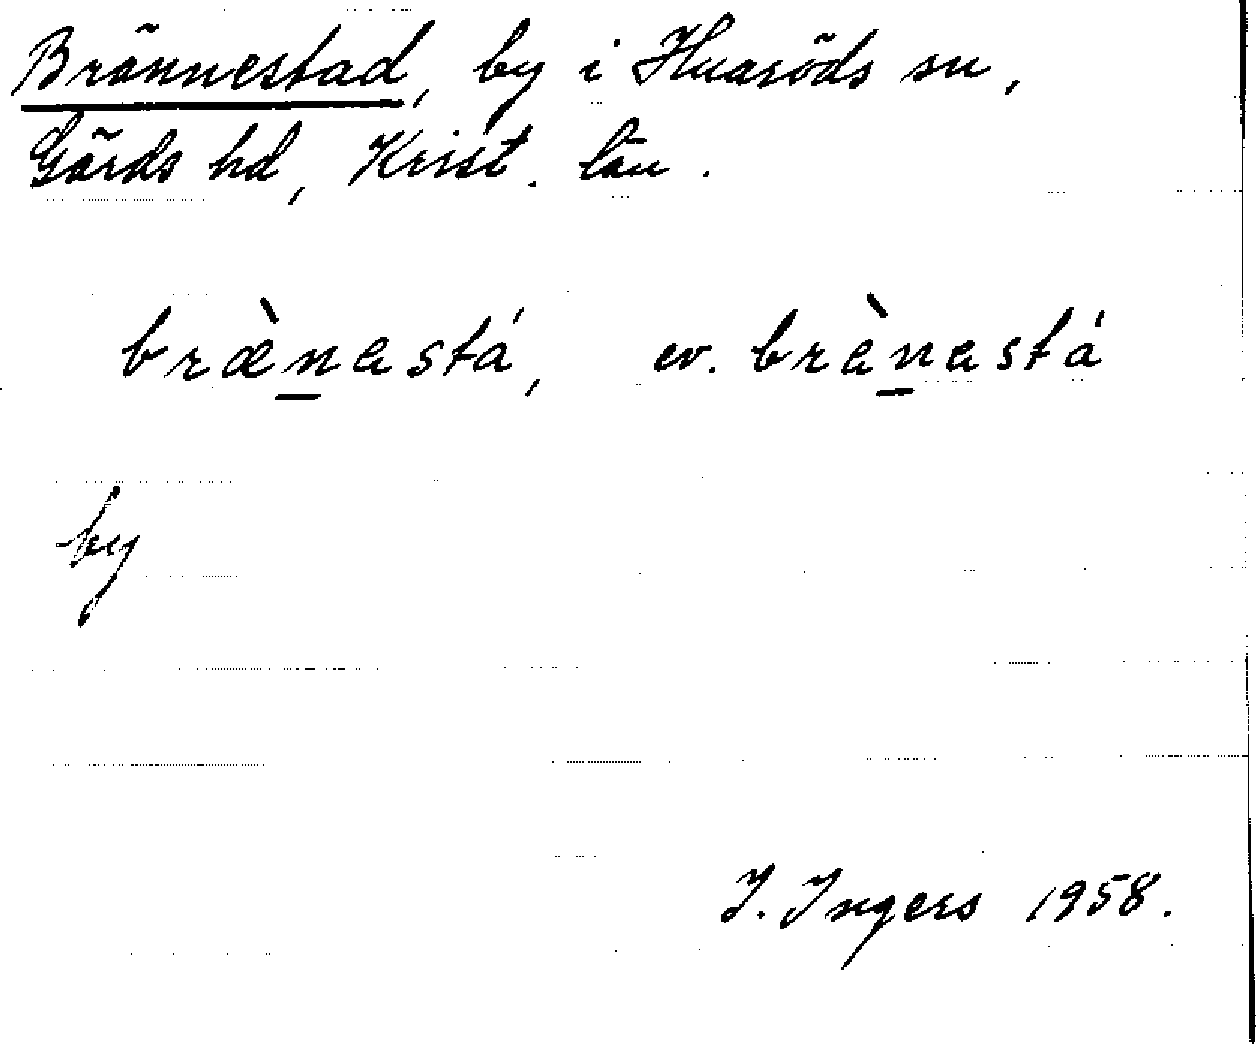 Brännestad, by i Huaröds sn,
Gärds hd, Krist. län.
bræ̀n̲astá, ev. brèn̲astá
by
I. Ingers 1958.